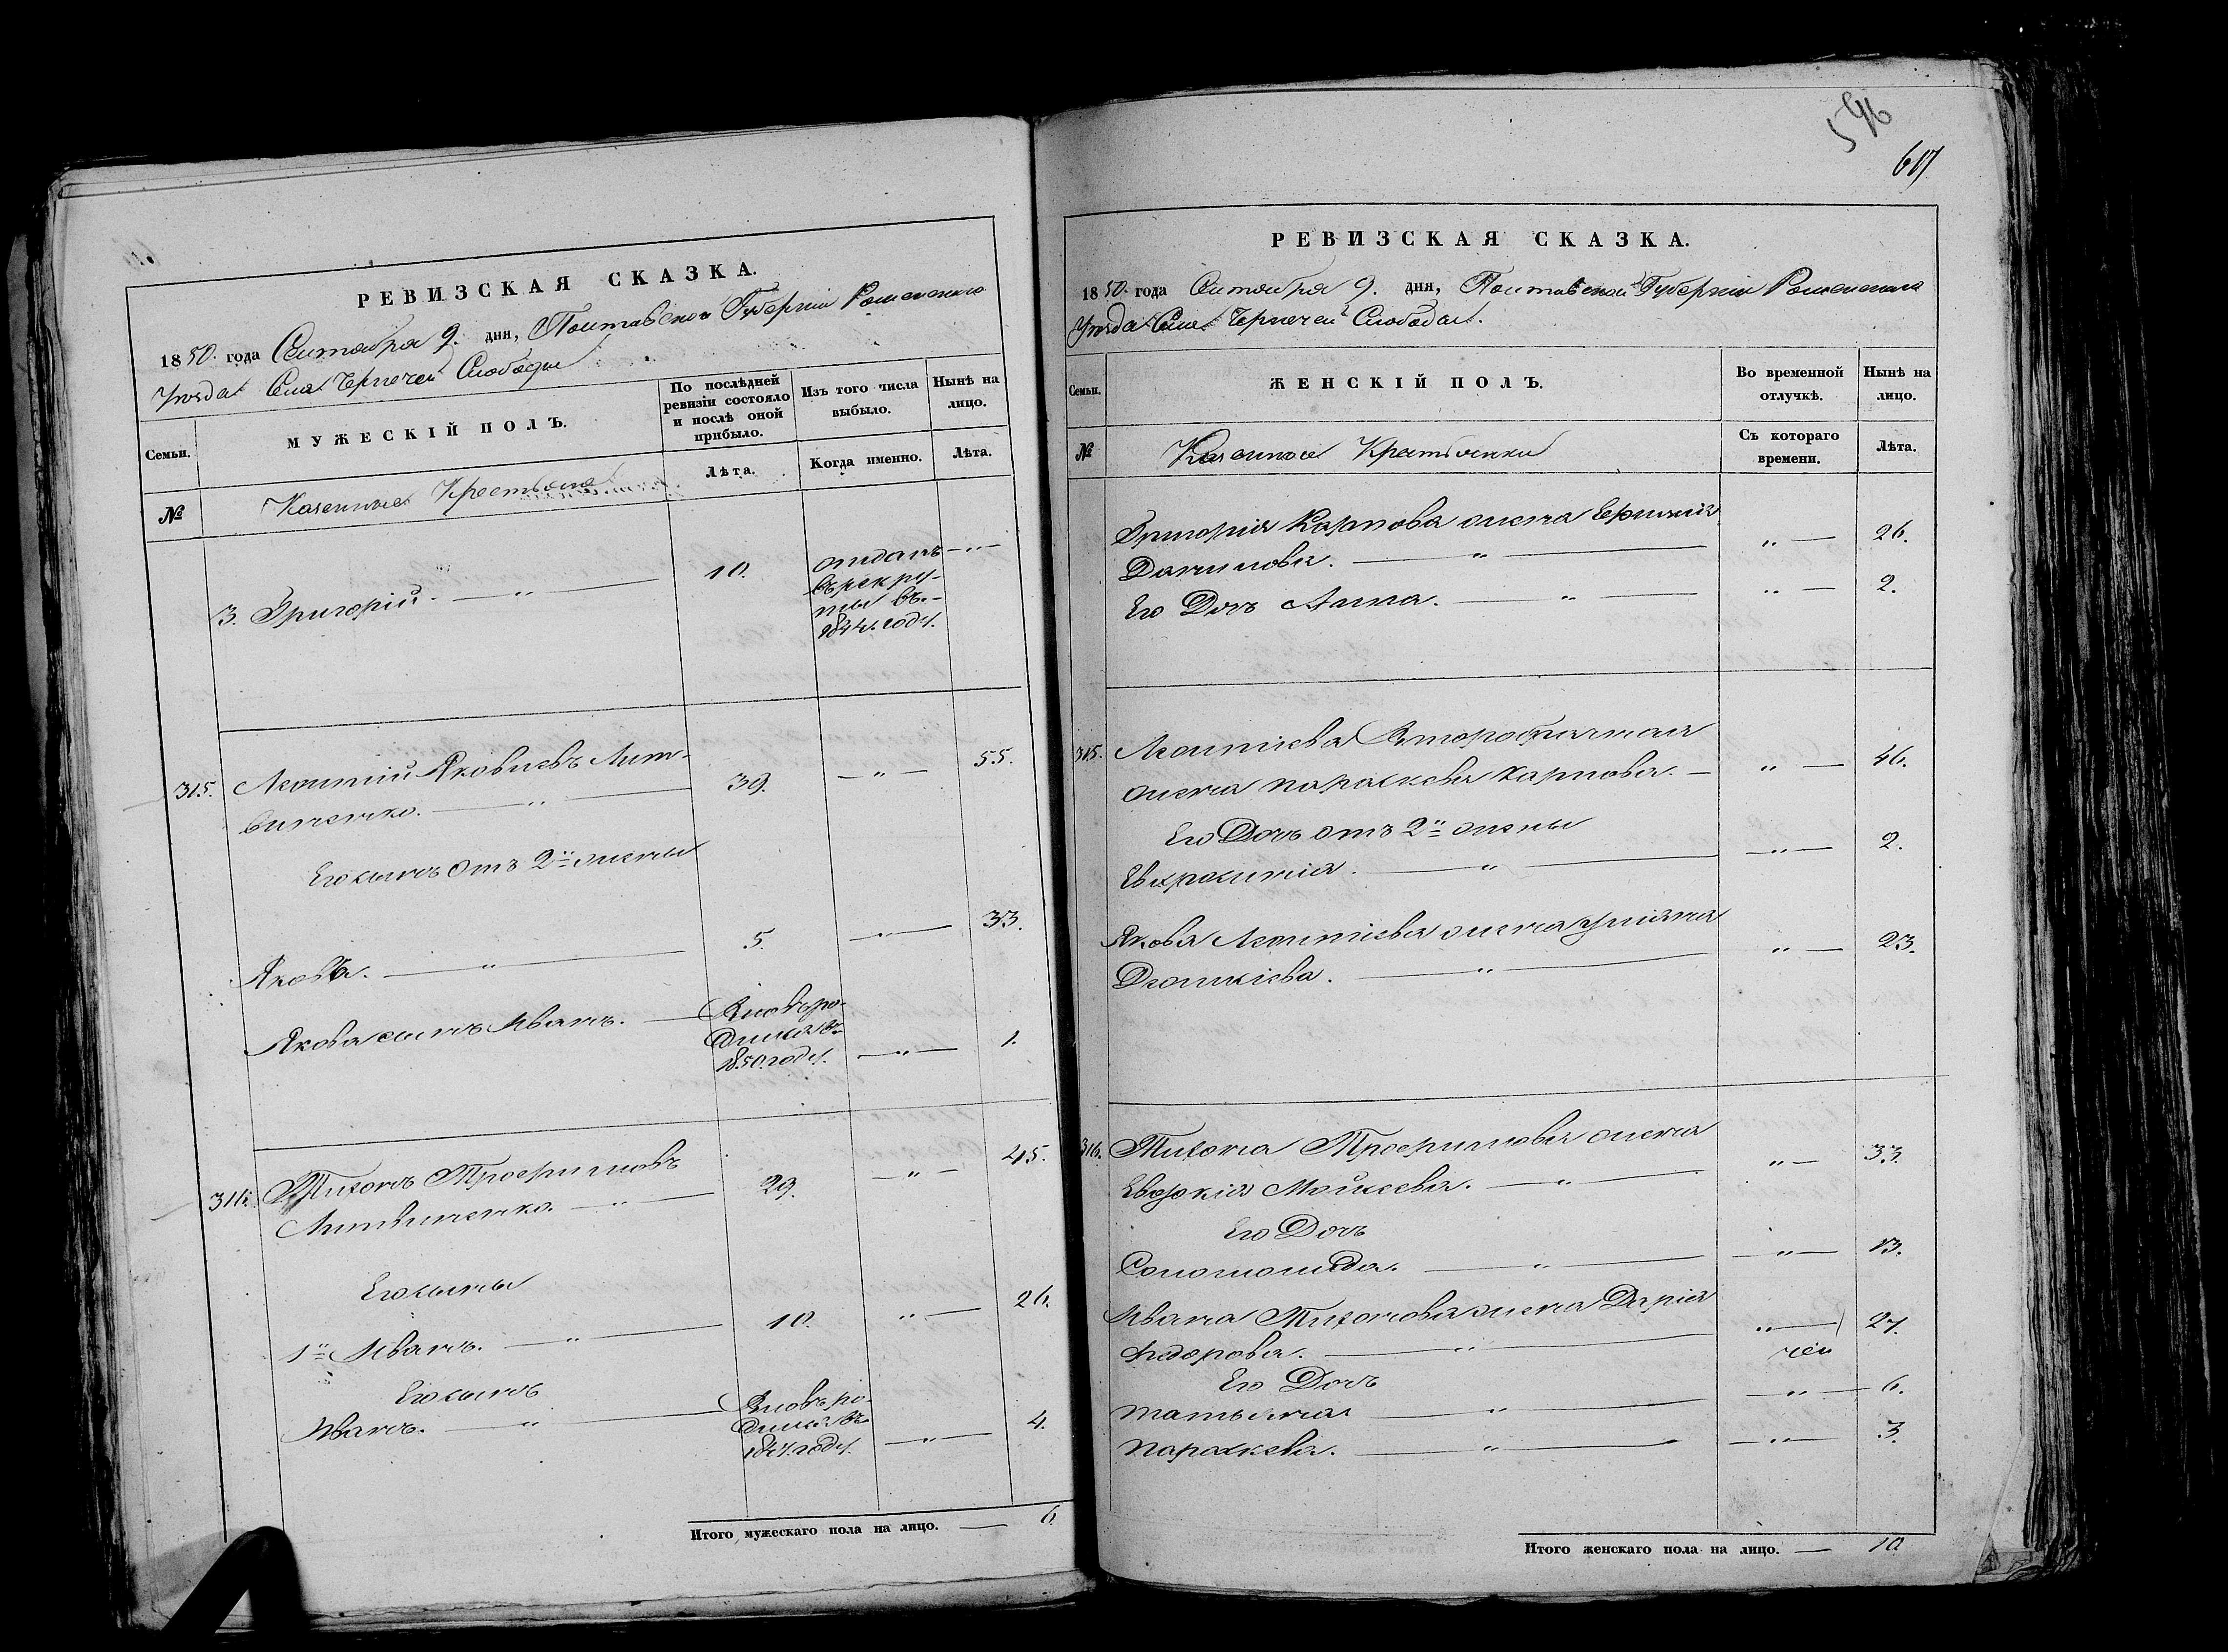 РЕВИЗСКАЯ СКАЗКА.
1850. года Сентября 9. дня, Полтавской Губернiи Роменскаго
Уезда Села Чернечей Слободы
Семьи.
МУЖЕСКIЙ ПОЛЪ.
По послѣдней ревизiи состояло и послѣ оной прибыло.
Изъ того числа выбыло.
Нынѣ на лицо.
№
Казенные Крестьяне
Лѣта.
Когда именно.
Лѣта.
3. Григорiй. — " — 10. отданъ — " —
въ рекру-
ты въ
1844. году.
315. Леонтiй Яковлевъ Лит-
виненко. — " — 39. — " — 55.
Его сынъ отъ 2й жены
Яковъ. — " — 5. — " — 33.
Якова сынъ Иванъ. — Вновь ро-
дился въ
1850. году. — " — 1.
316. Тихонъ Трофимовъ
Литвиненко. — " — 29. — " — 45.
Его сыны
1й Иванъ. — " — 10. " — 26.
Его сынъ
Иванъ. — " — Вновь ро-
дился въ
1847. году. — " — 4.
Итого мужескаго пола на лицо. — 6.
546
617
РЕВИЗСКАЯ СКАЗКА.
1850. года Сентября 9. дня, Полтавской Губернiи Роменскаго
Уезда Села Чернечей Слободы.
Семьи.
ЖЕНСКIЙ ПОЛЪ.
Во временной отлучкѣ.
Нынѣ на лицо.
№
Казенные Крестьянки
Съ котораго времени.
Лѣта.
Григорiя Карпова жена
Данилова. — " — " — 26.
Его Дочь Анна. — " — " — 2.
315. Леонтiева Второбрачная
жена Параскева Карпова. — " — 46.
Его Дочь отъ 2й жены
Евфросинiя. — " — — " — 2.
Якова Леонтiева жена Улiяна
— " — " — 23.
316. Тихона Трофимова жена
Евдокiя Мойсеева. — " — " — 33.
Его Дочь
Соломонида. — " — — " — 13.
Ивана Тихонова жена Дарiя
Федорова. — " — " — 27.
Его Дочь
Татьяна — " — — " — 6.
Параскева. — " — — " — 3.
Итого женскаго пола на лицо. — 10